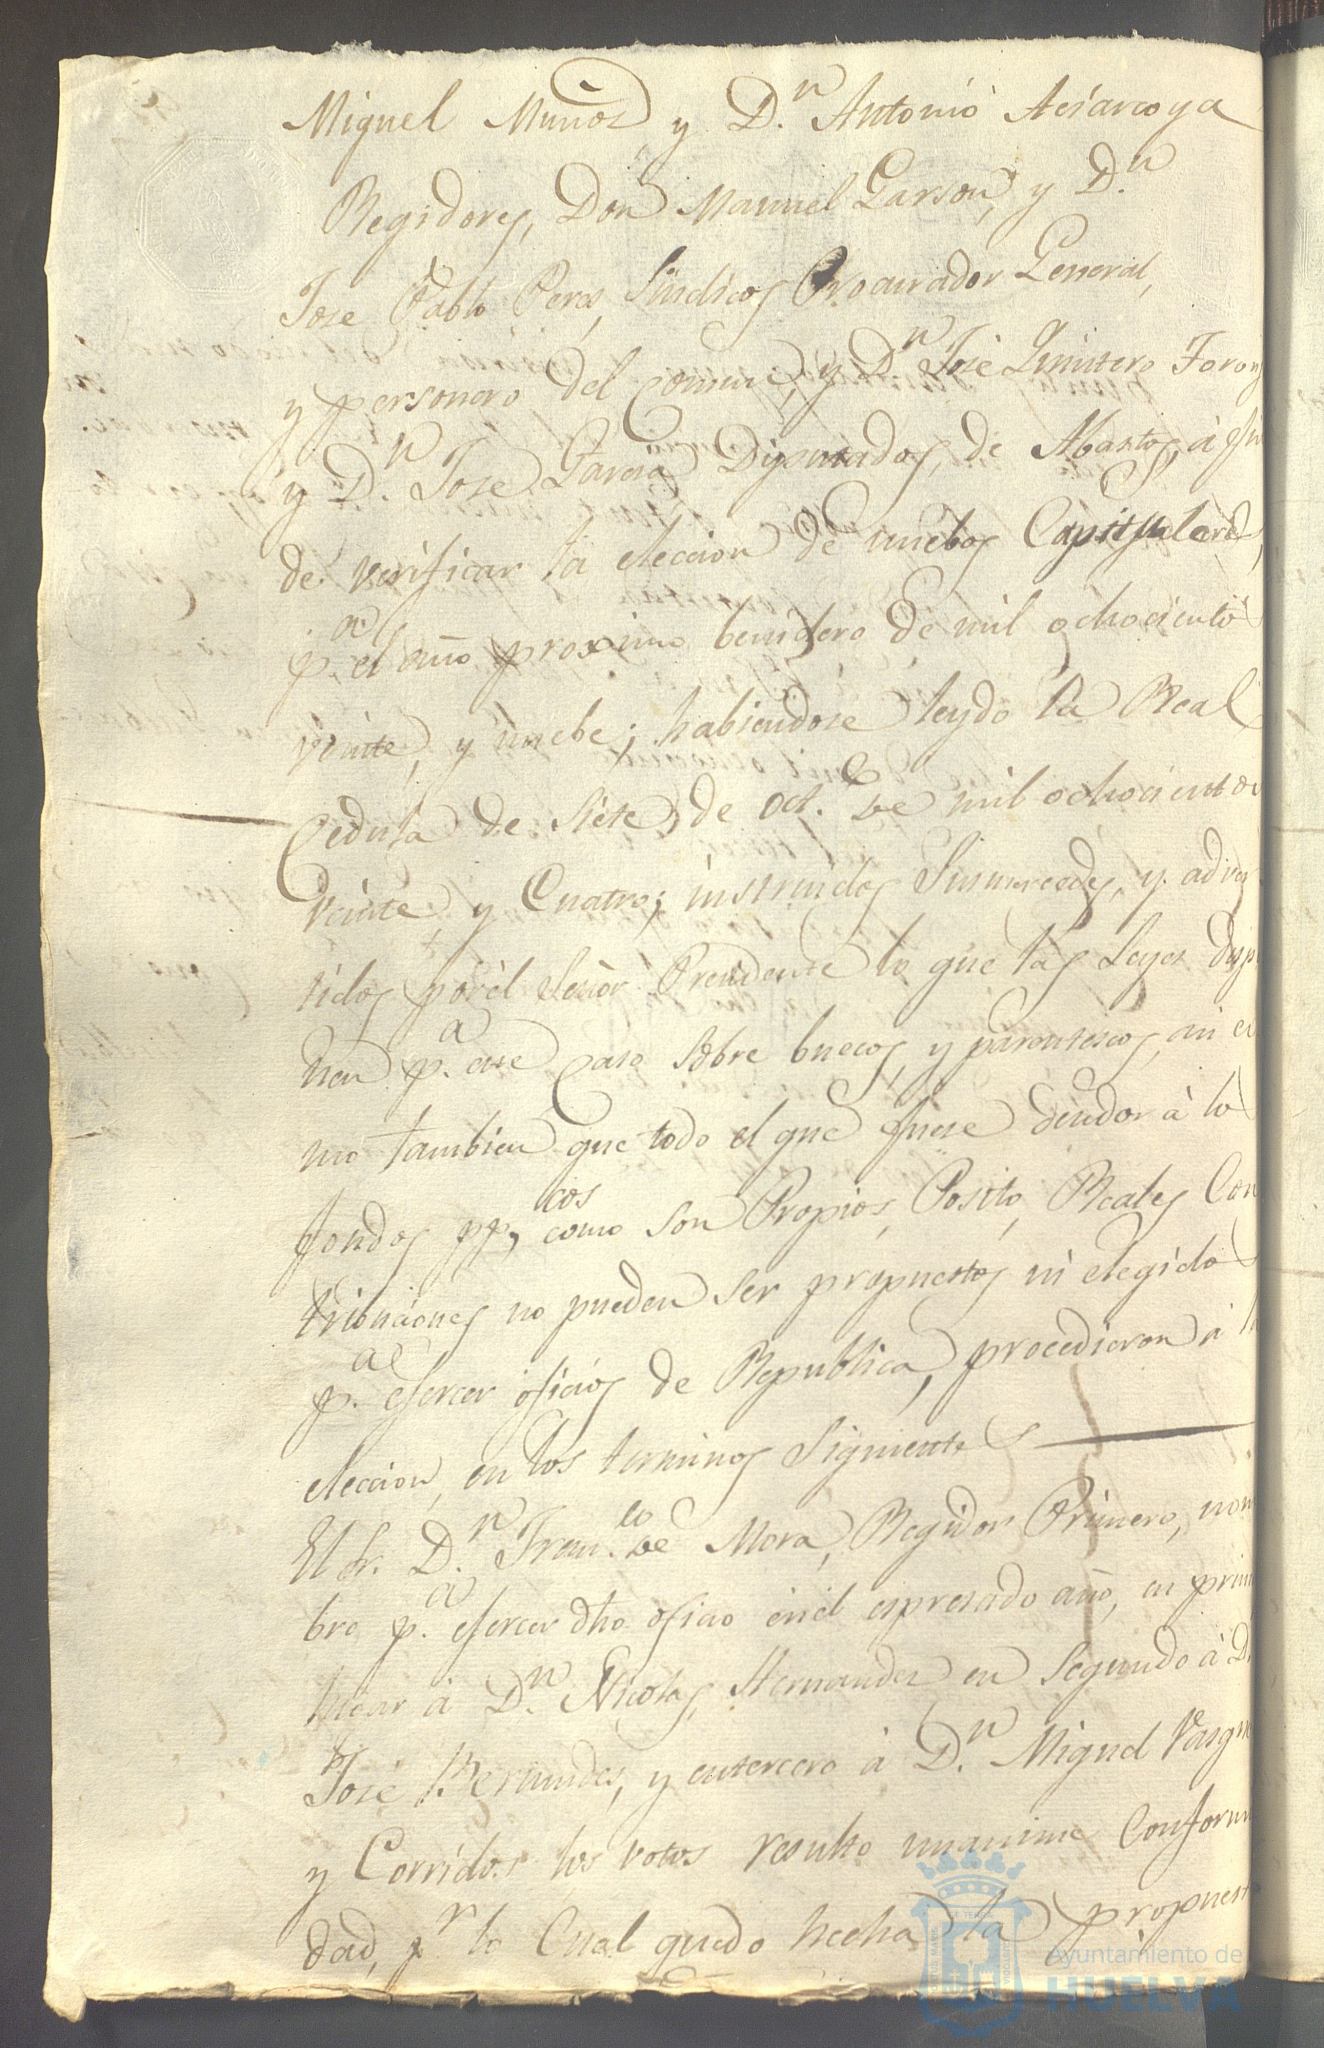 Miguel Muñoz, y D.n Antonio Aciarcoya
Regidores, Don Manuel Garson, y D.n
Jose Pablo Peres, Sindicos Procurador General,
y personero del Comun, y D.n José Quintero Toron
y D.n Jose Garcia Diputados, de Abastos, à fin
de verificar la eleccion de nuebos Capitulares,
p.a el año proximo benidero de mil ochociento
veinte, y nuebe; habiendose leydo la Real
Cedula de Siete de Oct.e de mil ochocientos
veinte, y Cuatro; instruidos Sinmercedes, y adver
tidos por el Señor Presidente lo que las Leyes dispo
nen p.a ese Caso sobre huecos, y parentescos, ni co
mo tambien que todo el que fuese deudor à lo
fondos pp.cos como son Propios, Posito, Reales Con
tribuciones no pueden ser propuestos ni elegido
p.a esercer oficios de Republica, procedieron à l
eleccion, en los terminos Siguientes
El Sr. D.n Fran.co de Mora, Regidor Primero, nom
bre p.a esercer dho oficio en el espresado año, en prim
lugar à D.n Nicolas Hernandes en Segundo à D.
José Hernandes, y entercero à D.n Miguel Vasque
y Corridos los votos resulto unanime Conformi
dad, p.r lo Cual quedo hecha la propuesta
Ayuntamiento de
HUELVA